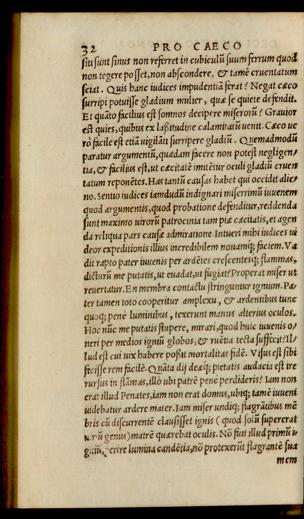 32 PRO CAECO
siti sunt sinus non referret in cubiculũ suum ferrum quod
non tegere posset, non abscondere, & tamẽ cruentatum
sciat. Quis hanc iudices impudentiã ferat? Negat cæco
surripi potuisse gladium mulier, quæ se quiete defendit.
Et quãto facilius est somnos decipere miserorũ? Grauior
est quies, quibus ex lassitudine calamitatũ uenit. Cæco ue
rò facile est etiã uigilãti surripere gladiũ. Quemadmodũ
paratur argumentũ, quædam facere non potest negligen/
tia, & facilius est, ut cæcitatẽ imitẽtur oculi gladiũ cruen
tatum reponẽtes. Has tantũ causas habet qui occidit alie/
no. Sentio iudices iamdudũ indignari miserrimũ iuuenem
quod argumentis, quod probatione defenditur, reddenda
sunt maximo uirorũ patrocinia tam piæ cæcitatis, et agen
da reliqua pars causæ admiratione. Intueri mihi iudices ui
deor expeditionis illius incredibilem nouamq; faciem. Va
dit rapto pater iuuenis per ardẽtes crescentesq; flammas,
dicturũ me putatis, ut euadat, ut fugiat? Properat miser ut
reuertatur. En membra contactu stringuntur ignium. Pa/
ter tamen toto cooperitur amplexu, & ardentibus iunc
quoq; penè luminibus, texerunt manus alterius oculos.
Hoc nũc me putatis stupere, mirari, quòd huic iuueni o/
neri per medios igniũ globos, & ruẽtia tecta suffecit? Il/
lud est cui uix habere possit mortalitas fidẽ. Visus est sibi
fecisse rem facilẽ. Quãta dij deæq; pietatis audacia est ire
rursus in flãmas, illò ubi patrẽ penè perdideris! Iam non
erat illud Penates, iam non erat domus, ubiq; tamẽ iuueni
uidebatur ardere mater. Iam miser undiq; flagrãtibus mẽ
bris cũ discurrentẽ clausisset ignis (quod solũ supererat
genus) matrẽ quærebat oculis. Nõ fuit illud primũ
perire lumina candẽtia, nõ protexerũt flagrantẽ sua
mem